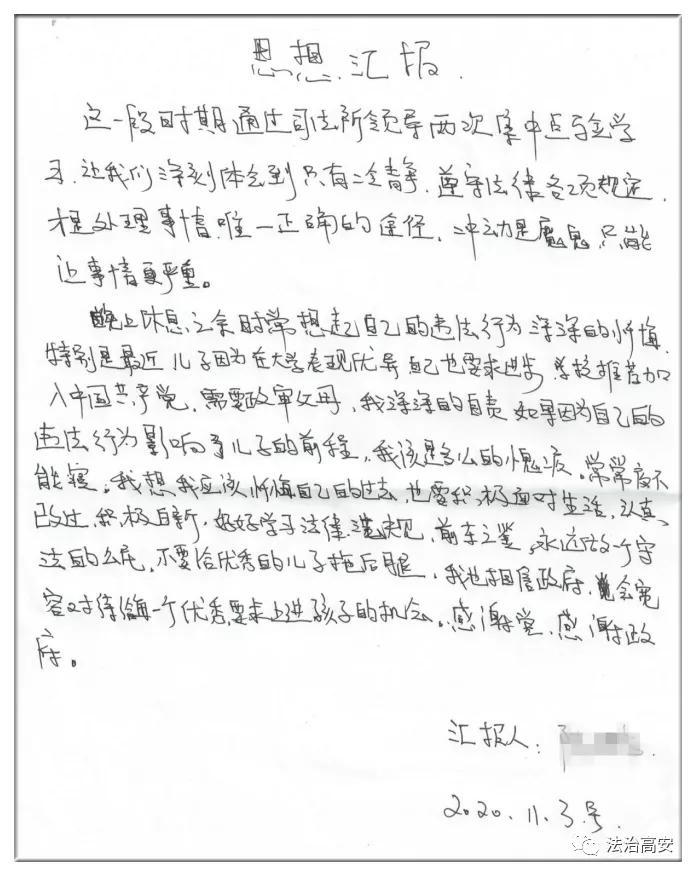 思想汇报.
这一段时期通过司法所领导两次集中点与会学
习.让我们深刻体会到只有冷静.遵守法律各项规定.
才是处理事情.唯一正确的途径.冲动是魔鬼.只能
让事情更严重。
晚上休息之余时常想起自己的违法行为深深的忏悔.
特别是最近儿子因为在大学表现优异自己也要求进步.学校推荐加
入中国共产党.需要政审父母,我深深的自责.如果因为自己的
违法行为影响了儿子的前程,我该是多么的愧疚.常常夜不
能寝.我想我应该忏悔自己的过去,也要积极面对生活,认真
改过,积极自新.好好学习法律法规,前车之鉴,永远做一个守
法的公民,不要给优秀的儿子拖后腿.我也相信政府.会宽
容对待每一个优秀要求上进孩子的机会.感谢党.感谢政
府。
汇报人:
2020.11.3号.
法治高安